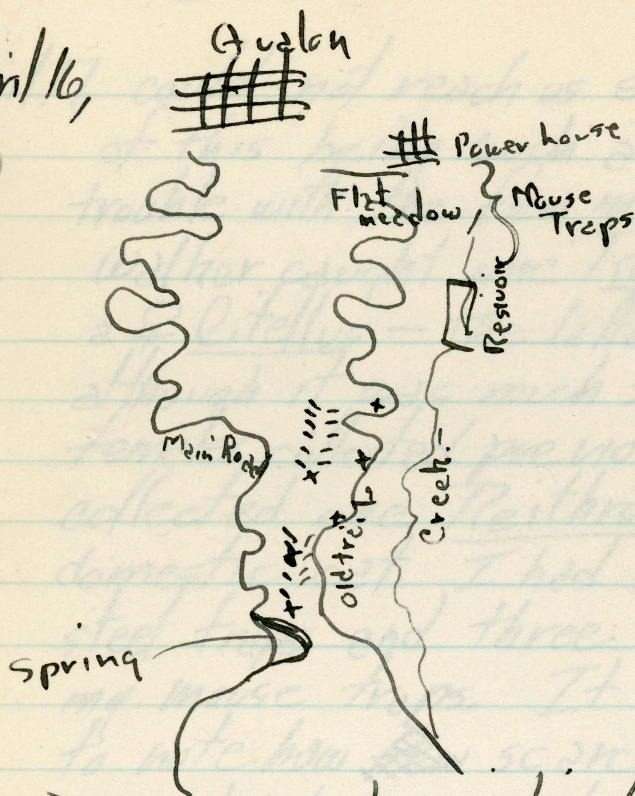 Avalon
16,
Power house
Flat
meadow
Mouse
Traps
Resivoir
Main Road
old trail
Creek
Spring